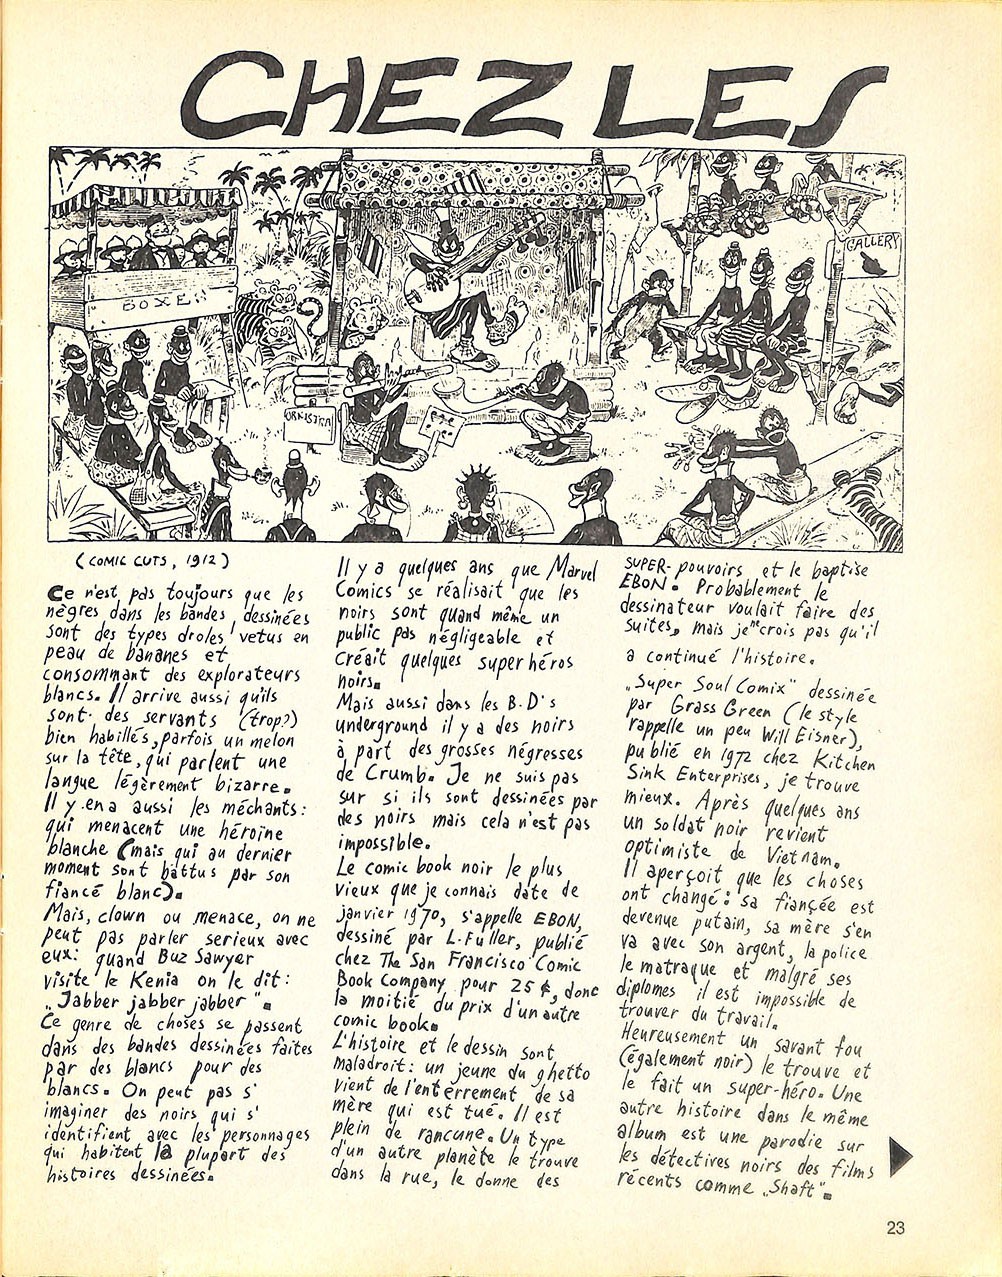 CHEZ LES
BOXEN
GALLERY
ORKISTRA
(COMIC CUTS, 1912)
Ce n'est pas toujours que les
nègres dans les bandes dessinées
sont des types droles vetus en
peau de bananes et
consommant des explorateurs
blancs. Il arrive aussi qu'ils
sont des servants (trop?)
bien habillés, parfois un melon
sur la tête, qui parlent une
langue légèrement bizarre.
Il y en a aussi les méchants:
qui menacent une héroïne
blanche (mais qui au dernier
moment sont battus par son
fiancé blanc).
Mais, clown ou menace, on ne
peut pas parler serieux avec
eux: quand Buz Sawyer
visite le Kenia on le dit:
„Jabber jabber jabber".
Ce genre de choses se passent
dans des bandes dessinées faites
par des blancs pour des
blancs. On peut pas s'
imaginer des noirs qui s'
identifient avec les personnages
qui habitent la plupart des
histoires dessinées.
Il y a quelques ans que Marvel
Comics se réalisait que les
noirs sont quand même un
public pas négligeable et
créait quelques super héros
noirs.
Mais aussi dans les B.D's
underground il y a des noirs
à part des grosses négresses
de Crumb. Je ne suis pas
sur si ils sont dessinées par
des noirs mais cela n'est pas
impossible.
Le comic book noir le plus
vieux que je connais date de
janvier 1970, s'appelle EBON,
dessiné par L. Fuller, publié
chez The San Francisco Comic
Book Company pour 25¢, donc
la moitié du prix d'un autre
comic book.
L'histoire et le dessin sont
maladroit: un jeune du ghetto
vient de l'enterrement de sa
mère qui est tué. Il est
plein de rancune. Un type
d'un autre planète le trouve
dans la rue, le donne des
SUPER-pouvoirs et le baptise
EBON. Probablement le
dessinateur voulait faire des
suites, mais je ne crois pas qu'il
a continué l'histoire.
„Super Soul Comix" dessinée
par Grass Green (le style
rappelle un peu Will Eisner),
publié en 1972 chez Kitchen
Sink Enterprises, je trouve
mieux. Après quelques ans
un soldat noir revient
optimiste de Vietnam.
Il aperçoit que les choses
ont changé: sa fiançée est
devenue putain, sa mère s'en
va avec son argent, la police
le matraque et malgré ses
diplomes il est impossible de
trouver du travail.
Heureusement un savant fou
(également noir) le trouve et
le fait un super-héro. Une
autre histoire dans le même
album est une parodie sur
les détectives noirs des films
récents comme „Shaft".
23